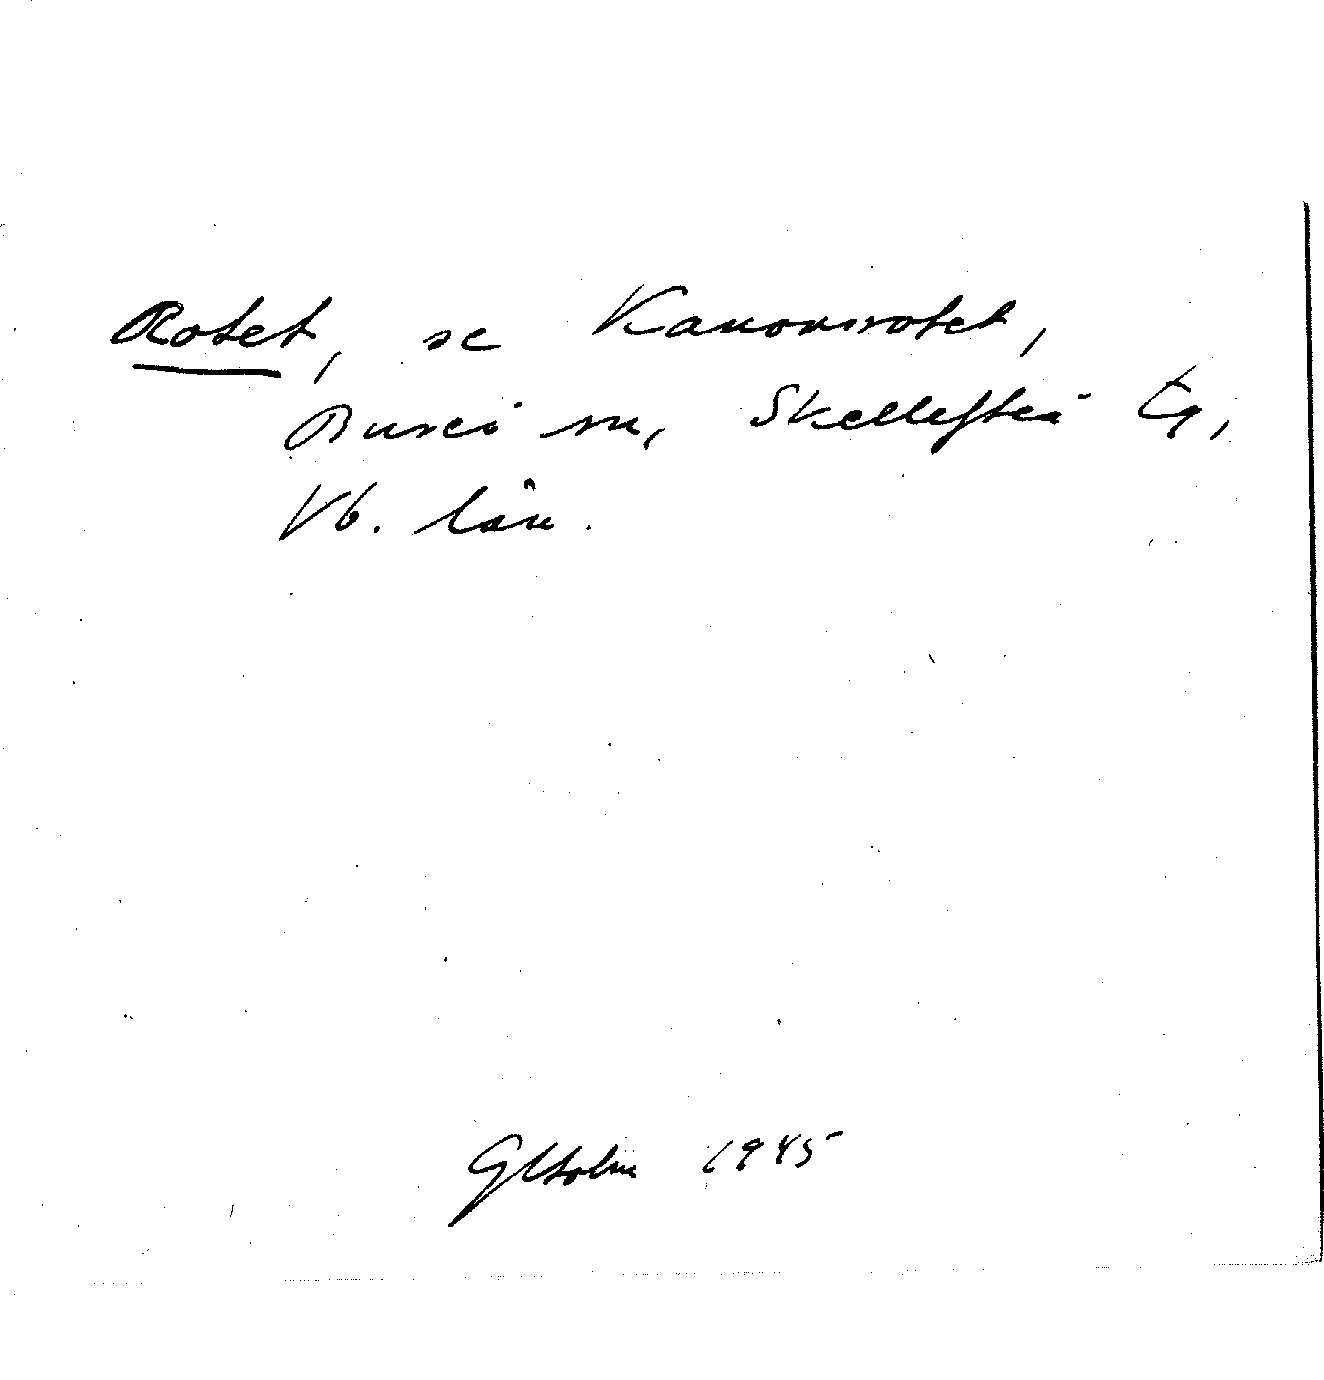 Rotet, se Kanonrotet,
Bureå sn, Skellefteå tg,
Vb. län.
GHolm 1945